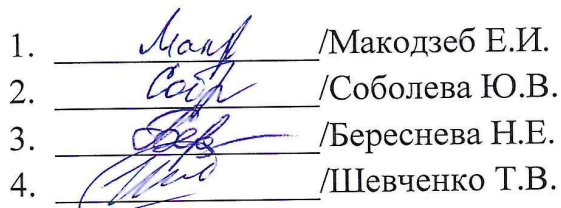 1. /Макодзеб Е.И.
2. /Соболева Ю.В.
3. /Береснева Н.Е.
4. /Шевченко Т.В.